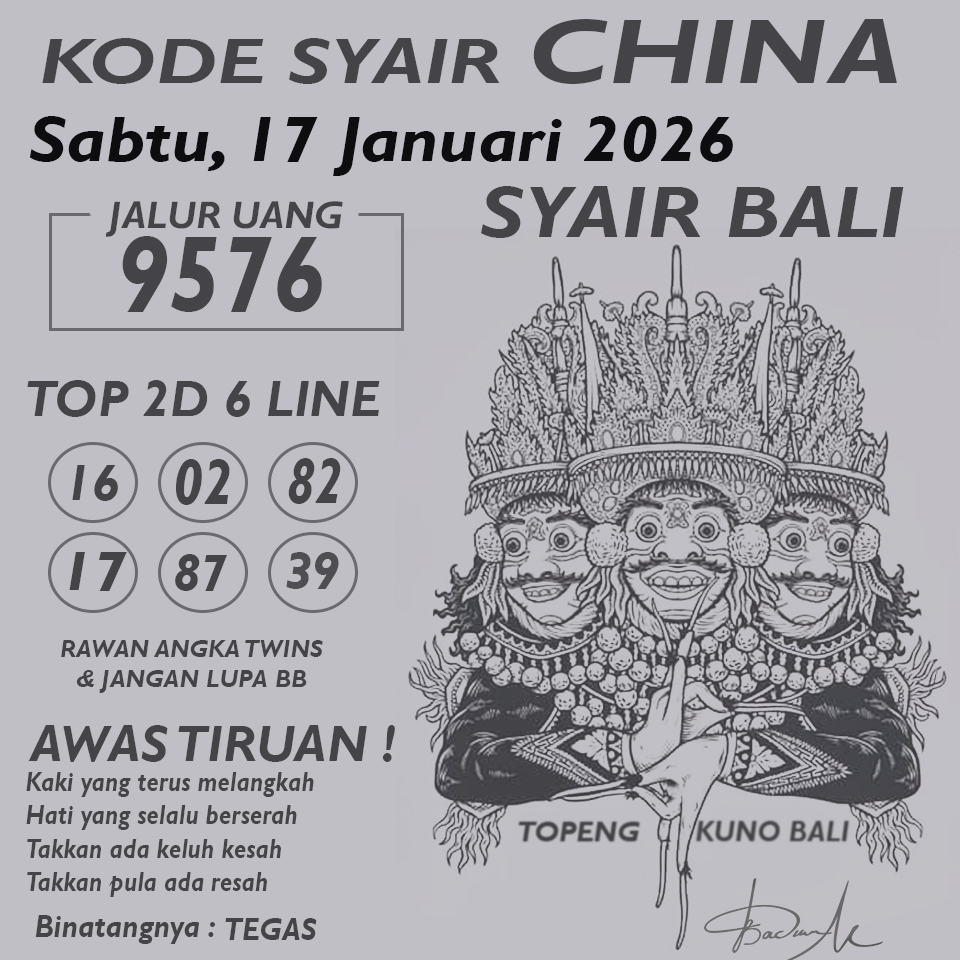 KODE SYAIR CHINA
Sabtu, 17 Januari 2026
SYAIR BALI
JALUR UANG
9576
TOP 2D 6 LINE
16 02 82
17 87 39
RAWAN ANGKA TWINS
& JANGAN LUPA BB
AWAS TIRUAN !
Kaki yang terus melangkah
Hati yang selalu berserah
Takkan ada keluh kesah
Takkan pula ada resah
Binatangnya : TEGAS
TOPENG KUNO BALI